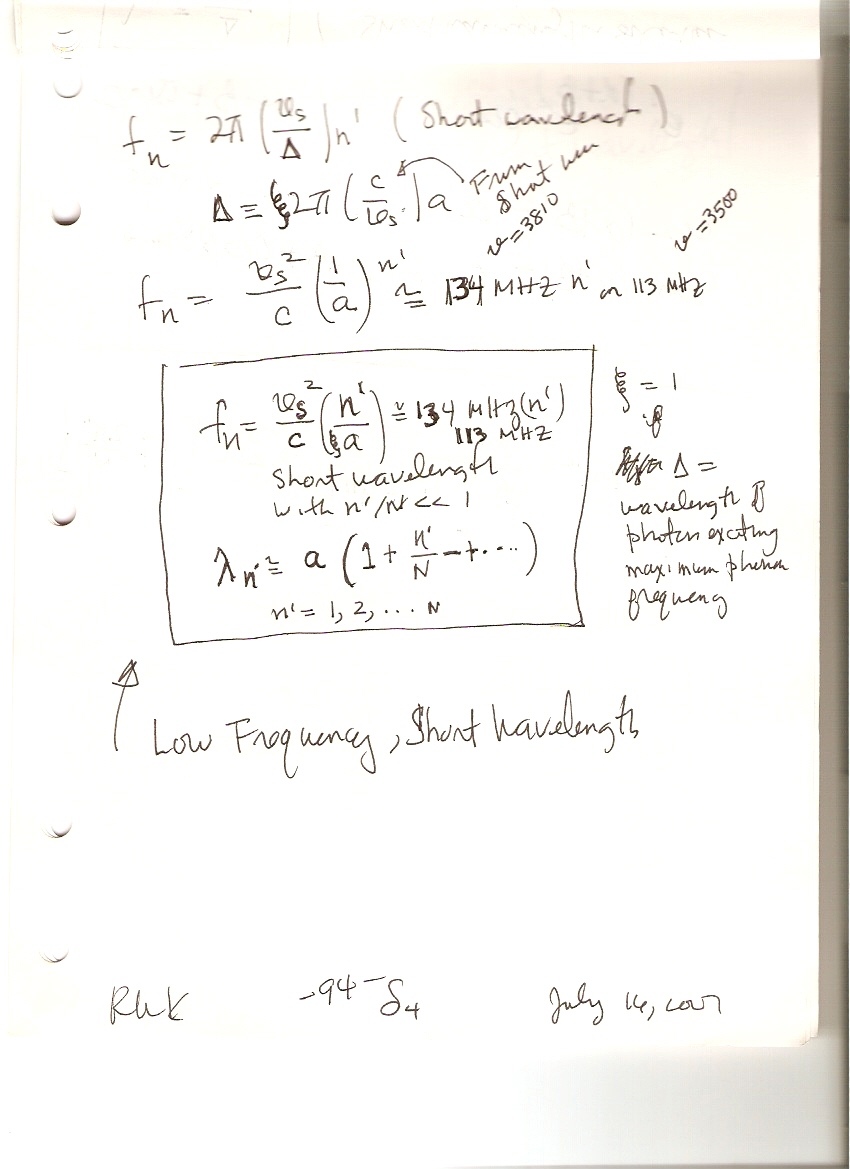 f_n = 2π (v_s/Δ) n' (Short wavelength)
Δ ≡ ξ2π (c/v_s) a From Short
v=3810 v=3500
f_n = v_s²/c (1/a) n' ≅ 134 MHz n' or 113 MHz
f_n = v_s²/c (n'/ξa) ≅ 134 MHz(n')
113 MHz
Short wavelength
with n'/N << 1
λ_n' ≅ a (1 + n'/N - + ...)
n' = 1, 2, ... N
ξ = 1
if
Δ =
wavelength of
photon exciting
maximum phonon
frequency
Low Frequency, Short Wavelength
RWK -94- δ_4 July 16, 2007